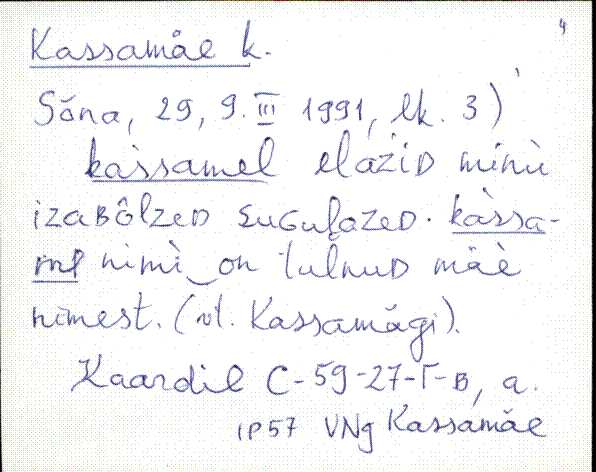 4
Kassamäe k.
Sõna, 29, 9. III 1991, lk. 3)
kàssamel elaziD minù
izaBôlzeD suGulazeD. kàssa-
mel nimì on tulnuD mäè
nimest. (vt. Kassamägi).
Kaardil C-59-27-Г-B, a.
IP57 VNg Kassamäe